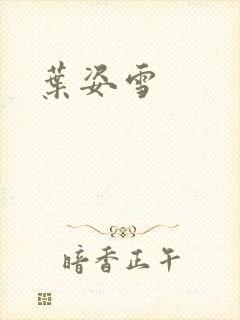 葉姿雪
暗香正午